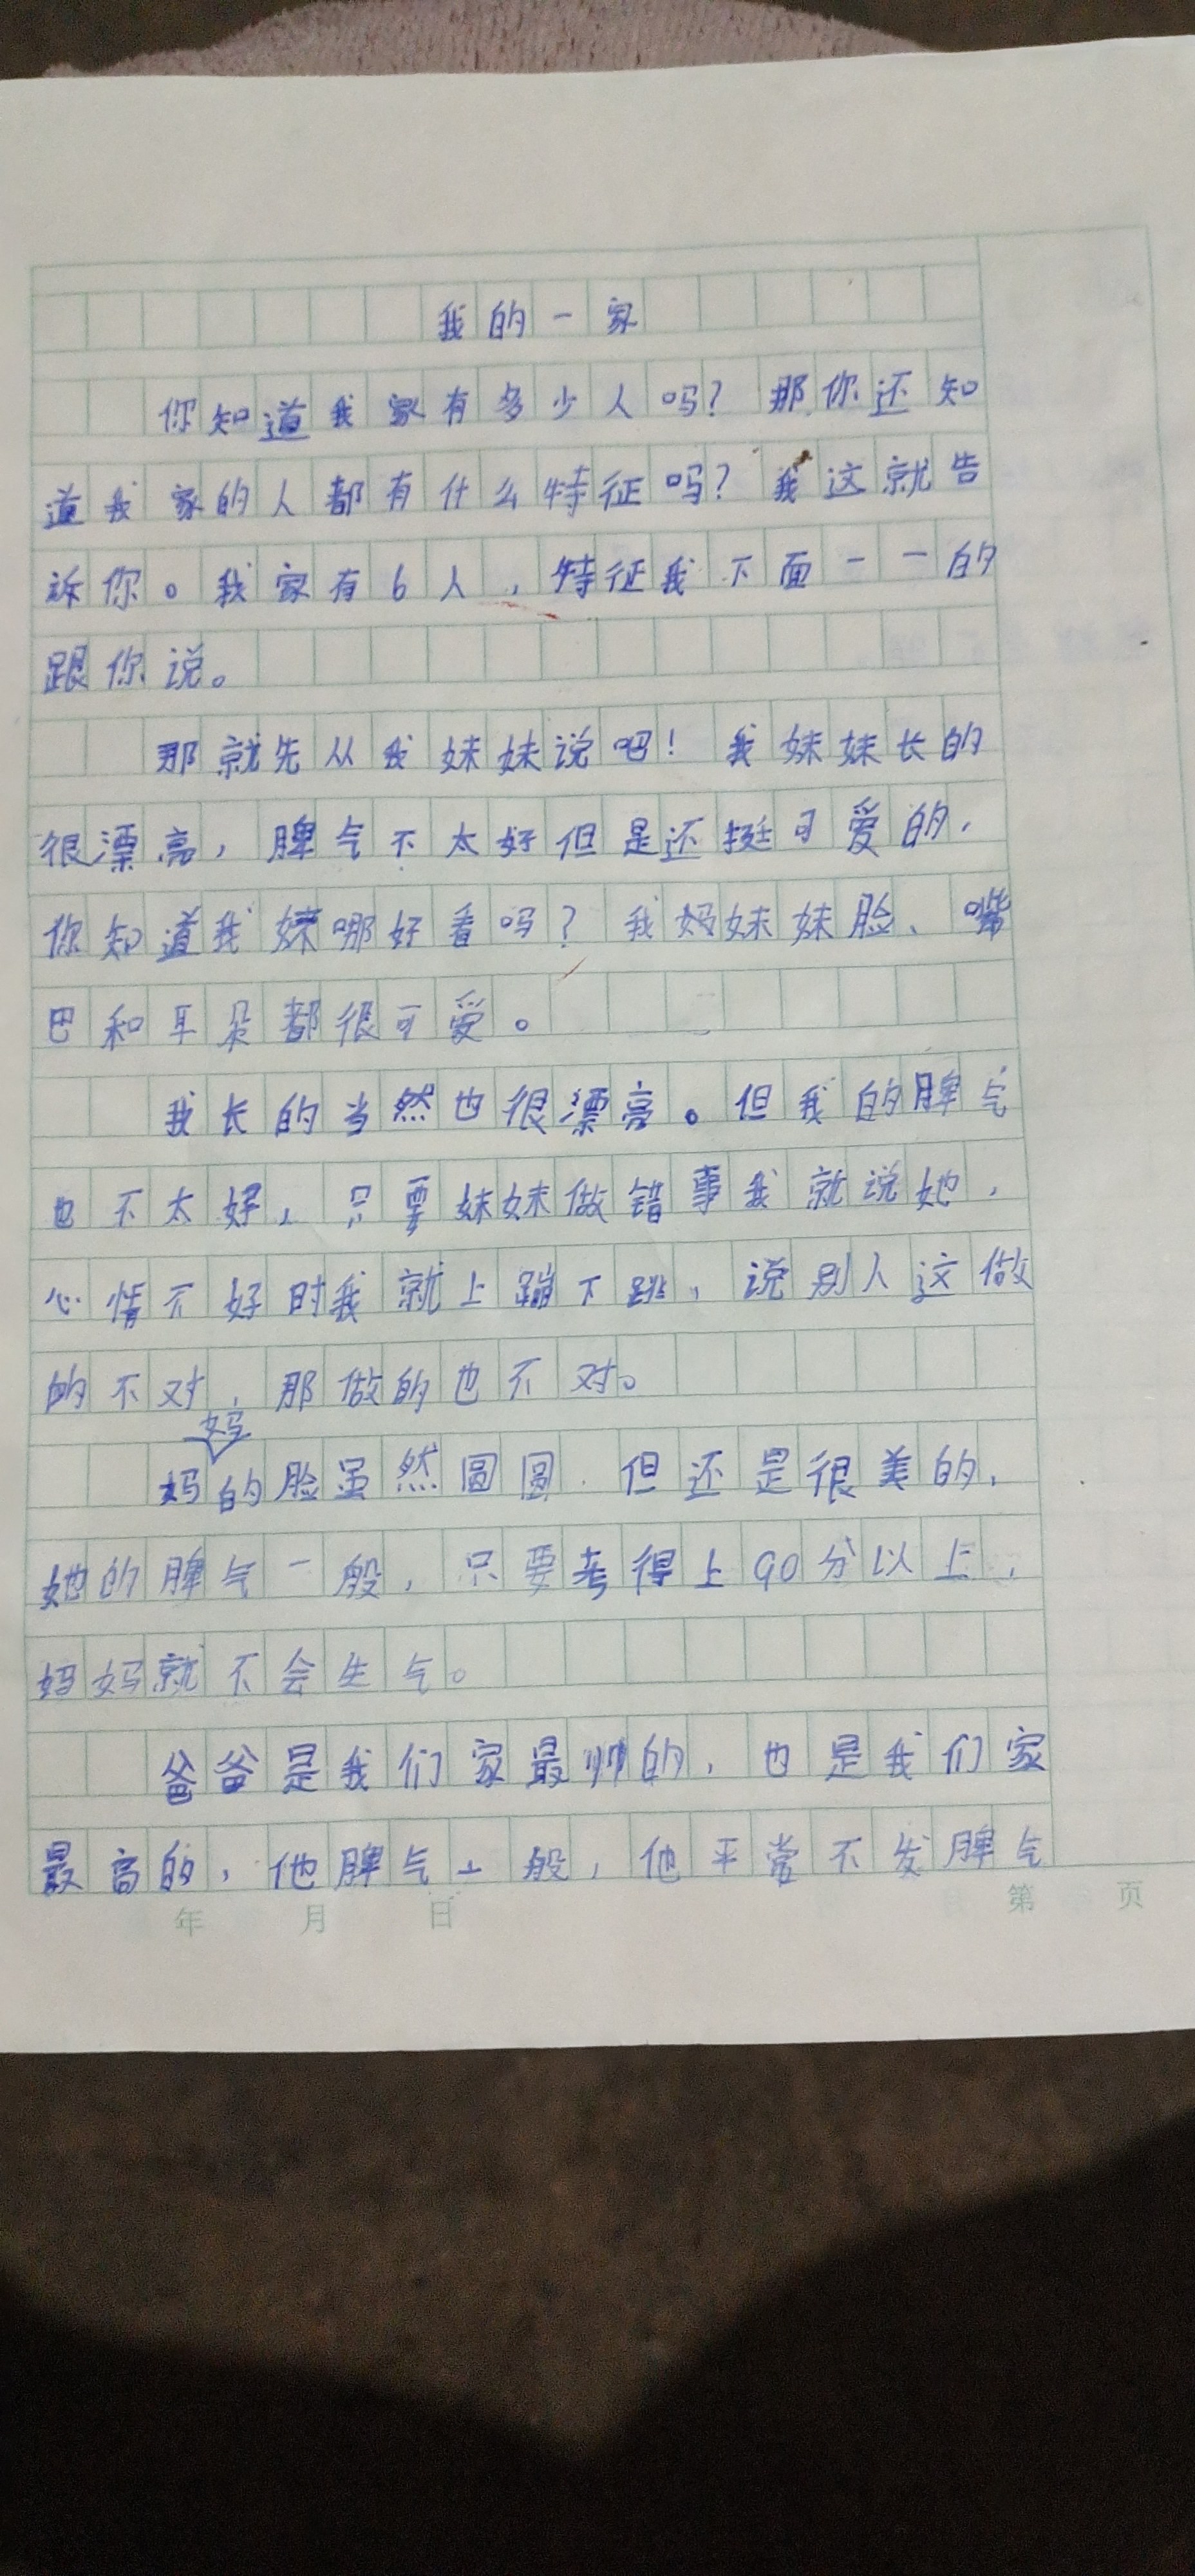 我的一家
你知道我家有多少人吗？那你还知
道我家的人都有什么特征吗？我这就告
诉你。我家有6人，特征我下面一一的
跟你说。
那就先从我妹妹说吧！我妹妹长的
很漂亮，脾气不太好但是还挺可爱的，
你知道我妹哪好看吗？我妈妹妹脸、嘴
巴和耳朵都很可爱。
我长的当然也很漂亮。但我的脾气
也不太好，只要妹妹做错事我就说她，
心情不好时我就上蹦下跳，说别人这做
的不对，那做的也不对。
妈妈的脸虽然圆圆，但还是很美的，
她的脾气一般，只要考得上90分以上，
妈妈就不会生气。
爸爸是我们家最帅的，也是我们家
最高的，他脾气一般，他平常不发脾气
年 月 日 第 页